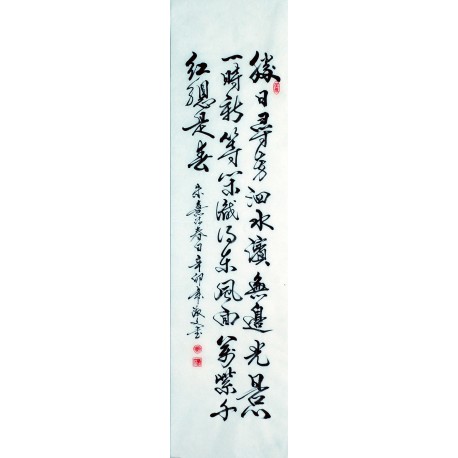 勝日尋芳泗水濱無邊光景
一時新等閑識得東風面萬紫千
紅總是春
朱熹 春日 辛卯年